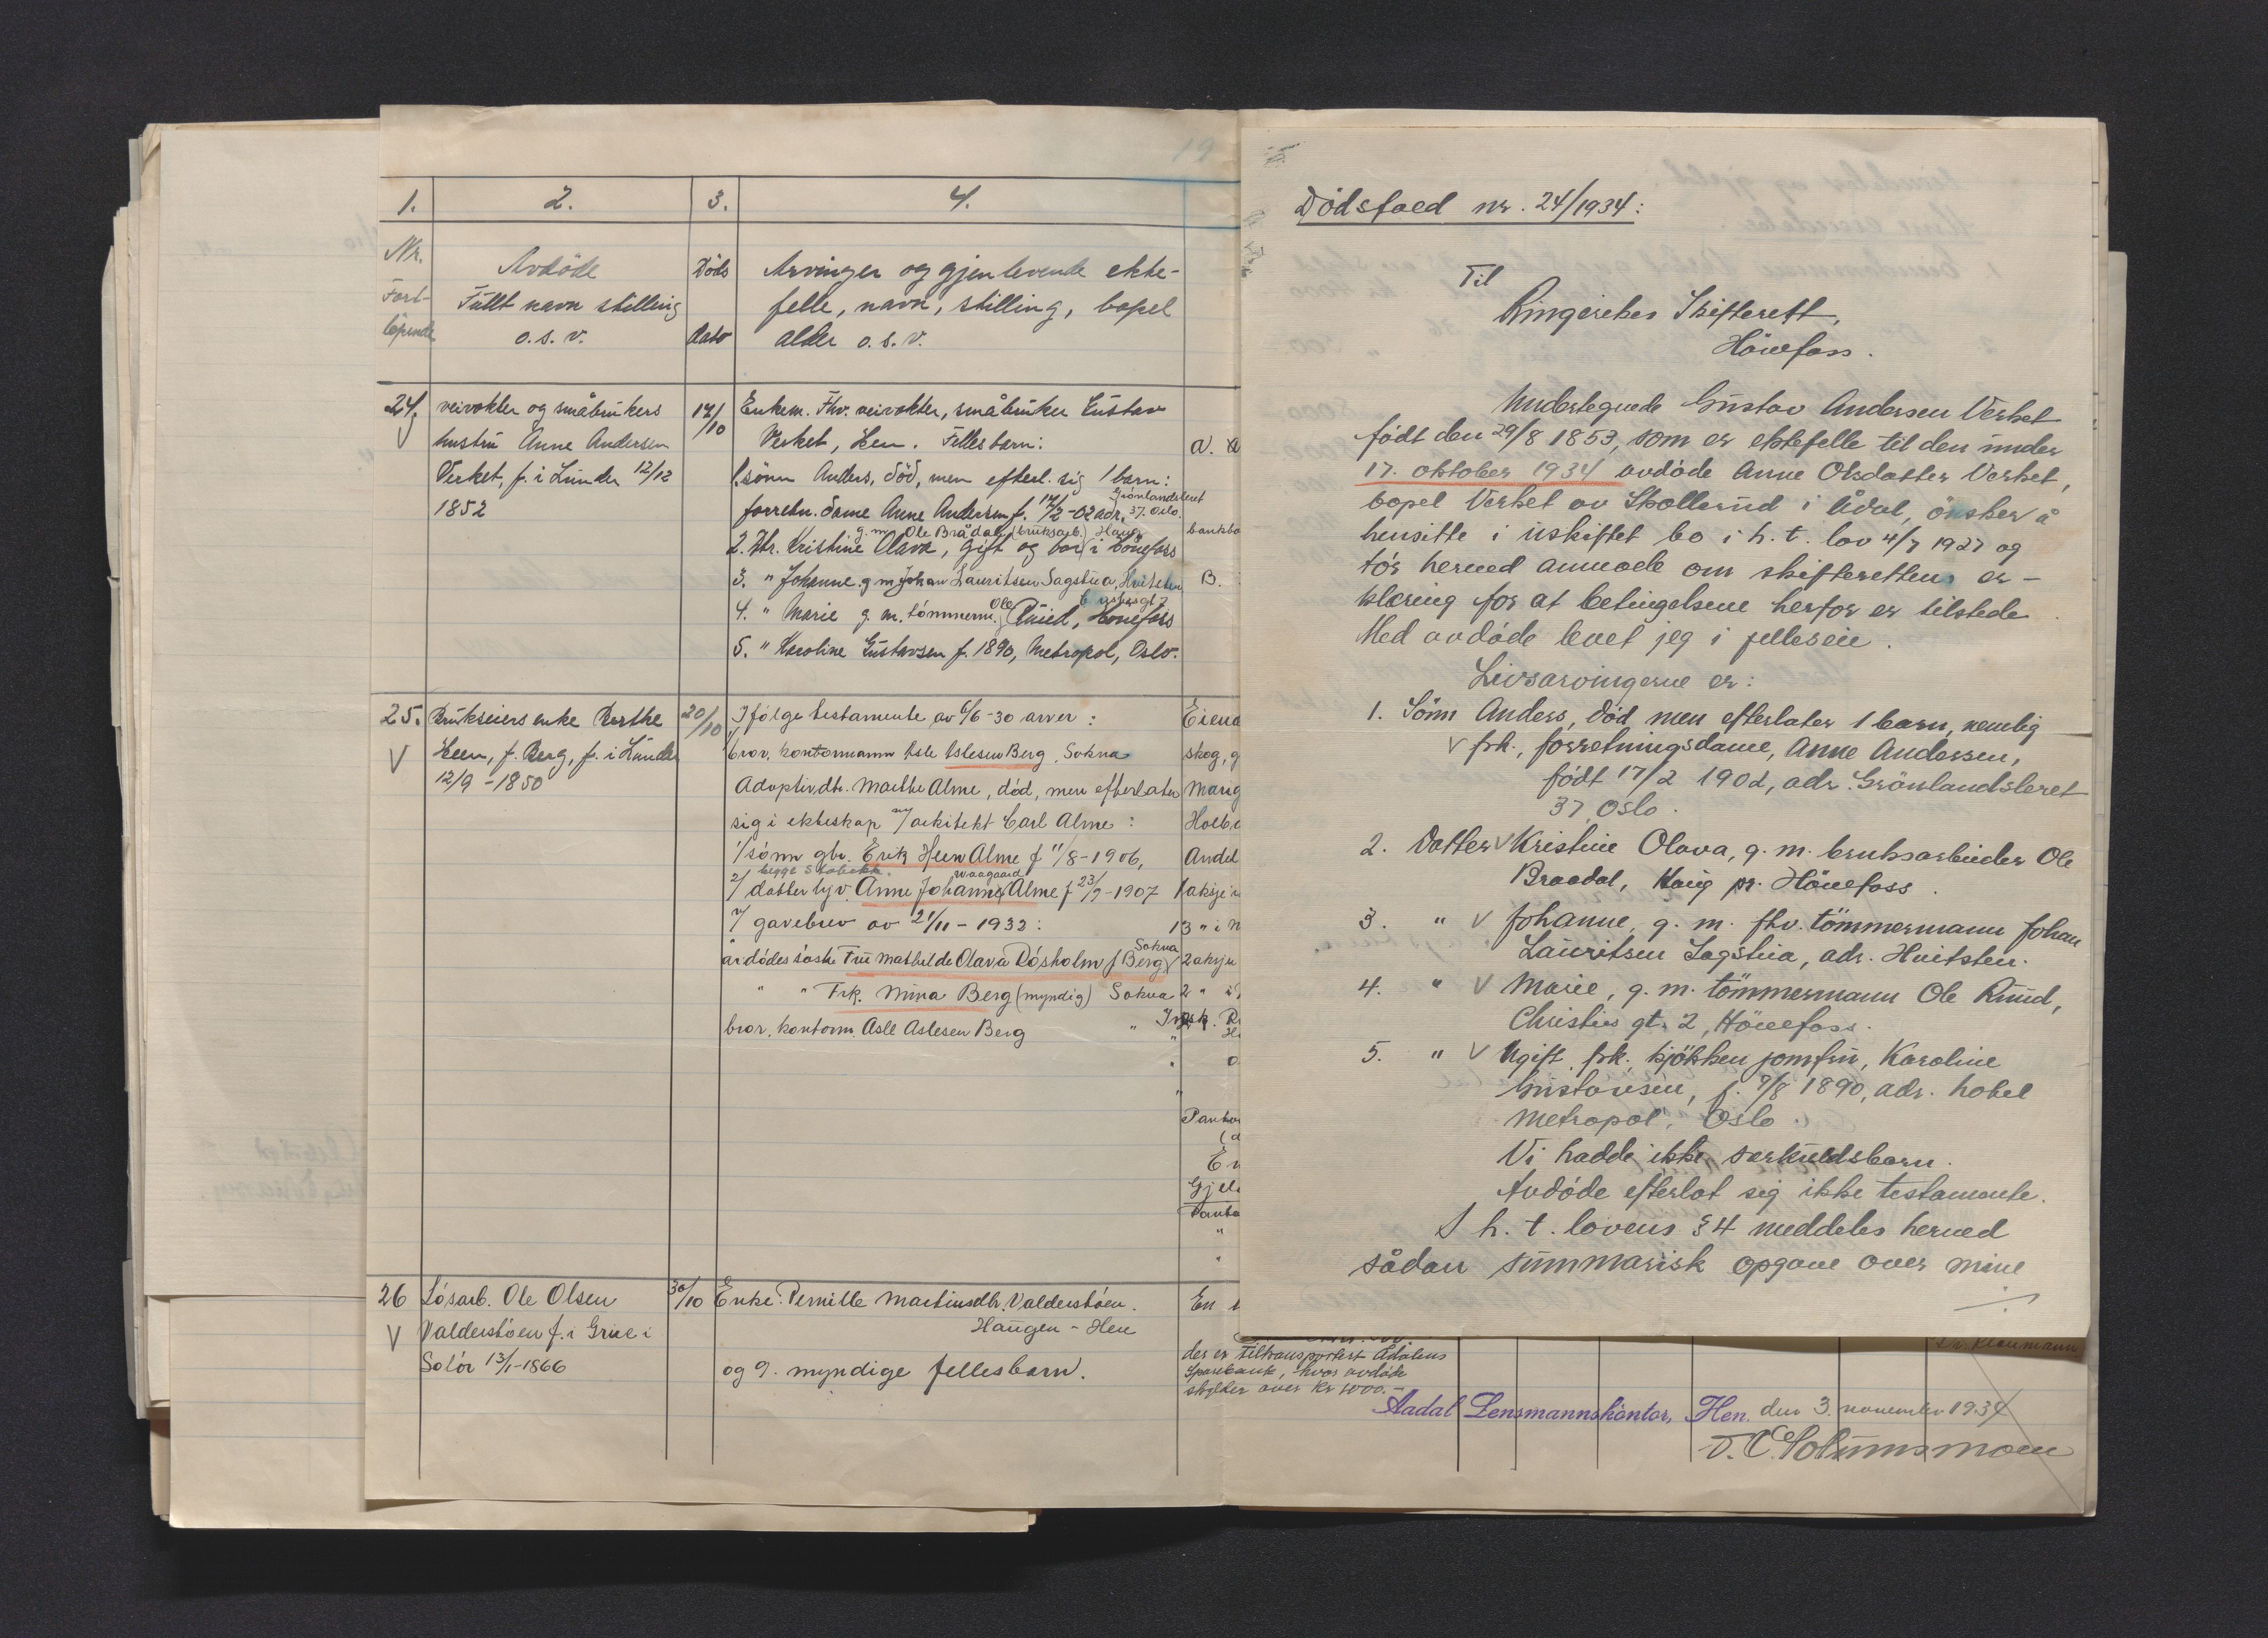 19
1. 2. 3. 4.
Nr.
Fort-
löpende
Avdöde
Fullt navn stilling
o.s.v.
Döds
dato
Arvinger og gjenlevende ekte-
felle, navn, stilling, bopel
alder o.s.v.
24.
veivokter og småbrukers
hustru Anne Andersen
Verket, f. i Lunder 12/12
1852
17/10
Enkem. Fhv. veivokter, småbruker Gustav
Verket, Hen. Fellesbarn:
1. sönn Anders, död, men efterl. sig 1 barn:
Grönlandsleret
forretn.dame Anne Andersen f. 17/2-02 adr. 37. Oslo.
g.m. Ole Brådal (bruksarb.) Haug
2. Dtr. Kristine Olava, gift og bor i Hönefoss
3. " Johanne g m Johan Lauritsen Sagstua, Hvitsten
4. " Marie g. m. tömmerm. Ole Ruud, Hönefoss
5. " Karoline Gustavsen f. 1890, Metropol, Oslo.
bankbo
B.
25.
Brukseiers enke Berthe
Heen, f. Berg, f. i Lunder
12/9-1850
20/10
Ifölge testamente av 6/6-30 arver:
bror, kontormann Asle Aslesen Berg, Sokna
Adoptivdtr. Marthe Alme, död, men efterlater
sig i ekteskap m/ arkitekt Carl Alme:
1/ sönn gbr. Erik Heen Alme f 11/8-1906,
begge Stabekk. Waagaard
2/ datter lyv. Anne Johanne Alme f 23/9-1907
v/ gavebrev av 21/11-1932:
Sokna
avdödes söster Fru Mathilde Olava Rösholm f Berg
" " Frk. Nina Berg (myndig) Sokna
bror, kontorm. Asle Aslesen Berg "
Eiend
skog, g
Mang
Holb.
Andel
1 aksje
13 " i N
2 aksje
2 "
Panto
En
Gjel
Panto
"
26
Lösarb. Ole Olsen
Valderstöen f. i Grue i
Solör 13/1-1866
30/10
Enke: Pernille Martinsdtr. Valderstöen.
Haugen - Hen
og 9. myndige fellesbarn.
En
der er tiltransportert Ådalens
Sparebank, hvor avdöde
skylder over kr 1000.-
Aadal Lensmannskontor, Hen. den 3. november 1934
Dödsfald nr. 24/1934:
Til
Ringerikes Skifterett,
Hönefoss.
Undertegnede Gustav Andersen Verket
födt den 29/8 1853, som er ektefelle til den under
17. oktober 1934 avdöde Anne Olsdatter Verket,
bopel Verket av Skollerud i Ådal, önsker å
hensitte i uskiftet bo i h. t. lov 4/7 1927 og
tör herved anmode om skifterettens er-
klæring for at betingelsene herfor er tilstede.
Med avdöde levet jeg i felleseie.
Livsarvingerne er:
1. Sönn Anders, död, men efterlater 1 barn, nemlig
frk., forretningsdame, Anne Andersen,
födt 17/2 1902, adr. Grönlandsleret
37, Oslo.
2. Datter Kristine Olava, g. m. bruksarbeider Ole
Braadal, Haug pr. Hönefoss.
3. " Johanne, g. m. fhv. tömmermann Johan
Lauritsen Sagstua, adr. Hvitsten.
4. " Marie, g. m. tömmermann Ole Ruud,
Christies gt. 2, Hönefoss.
5. " Ugift, frk. kjökkenjomfru, Karoline
Gustavsen, f. 9/8 1890, adr. hotel
Metropol, Oslo.
Vi hadde ikke særkuldsbarn.
Avdöde efterlot sig ikke testamente.
I h. t. lovens § 4 meddeles herved
sådan summarisk opgave over mine